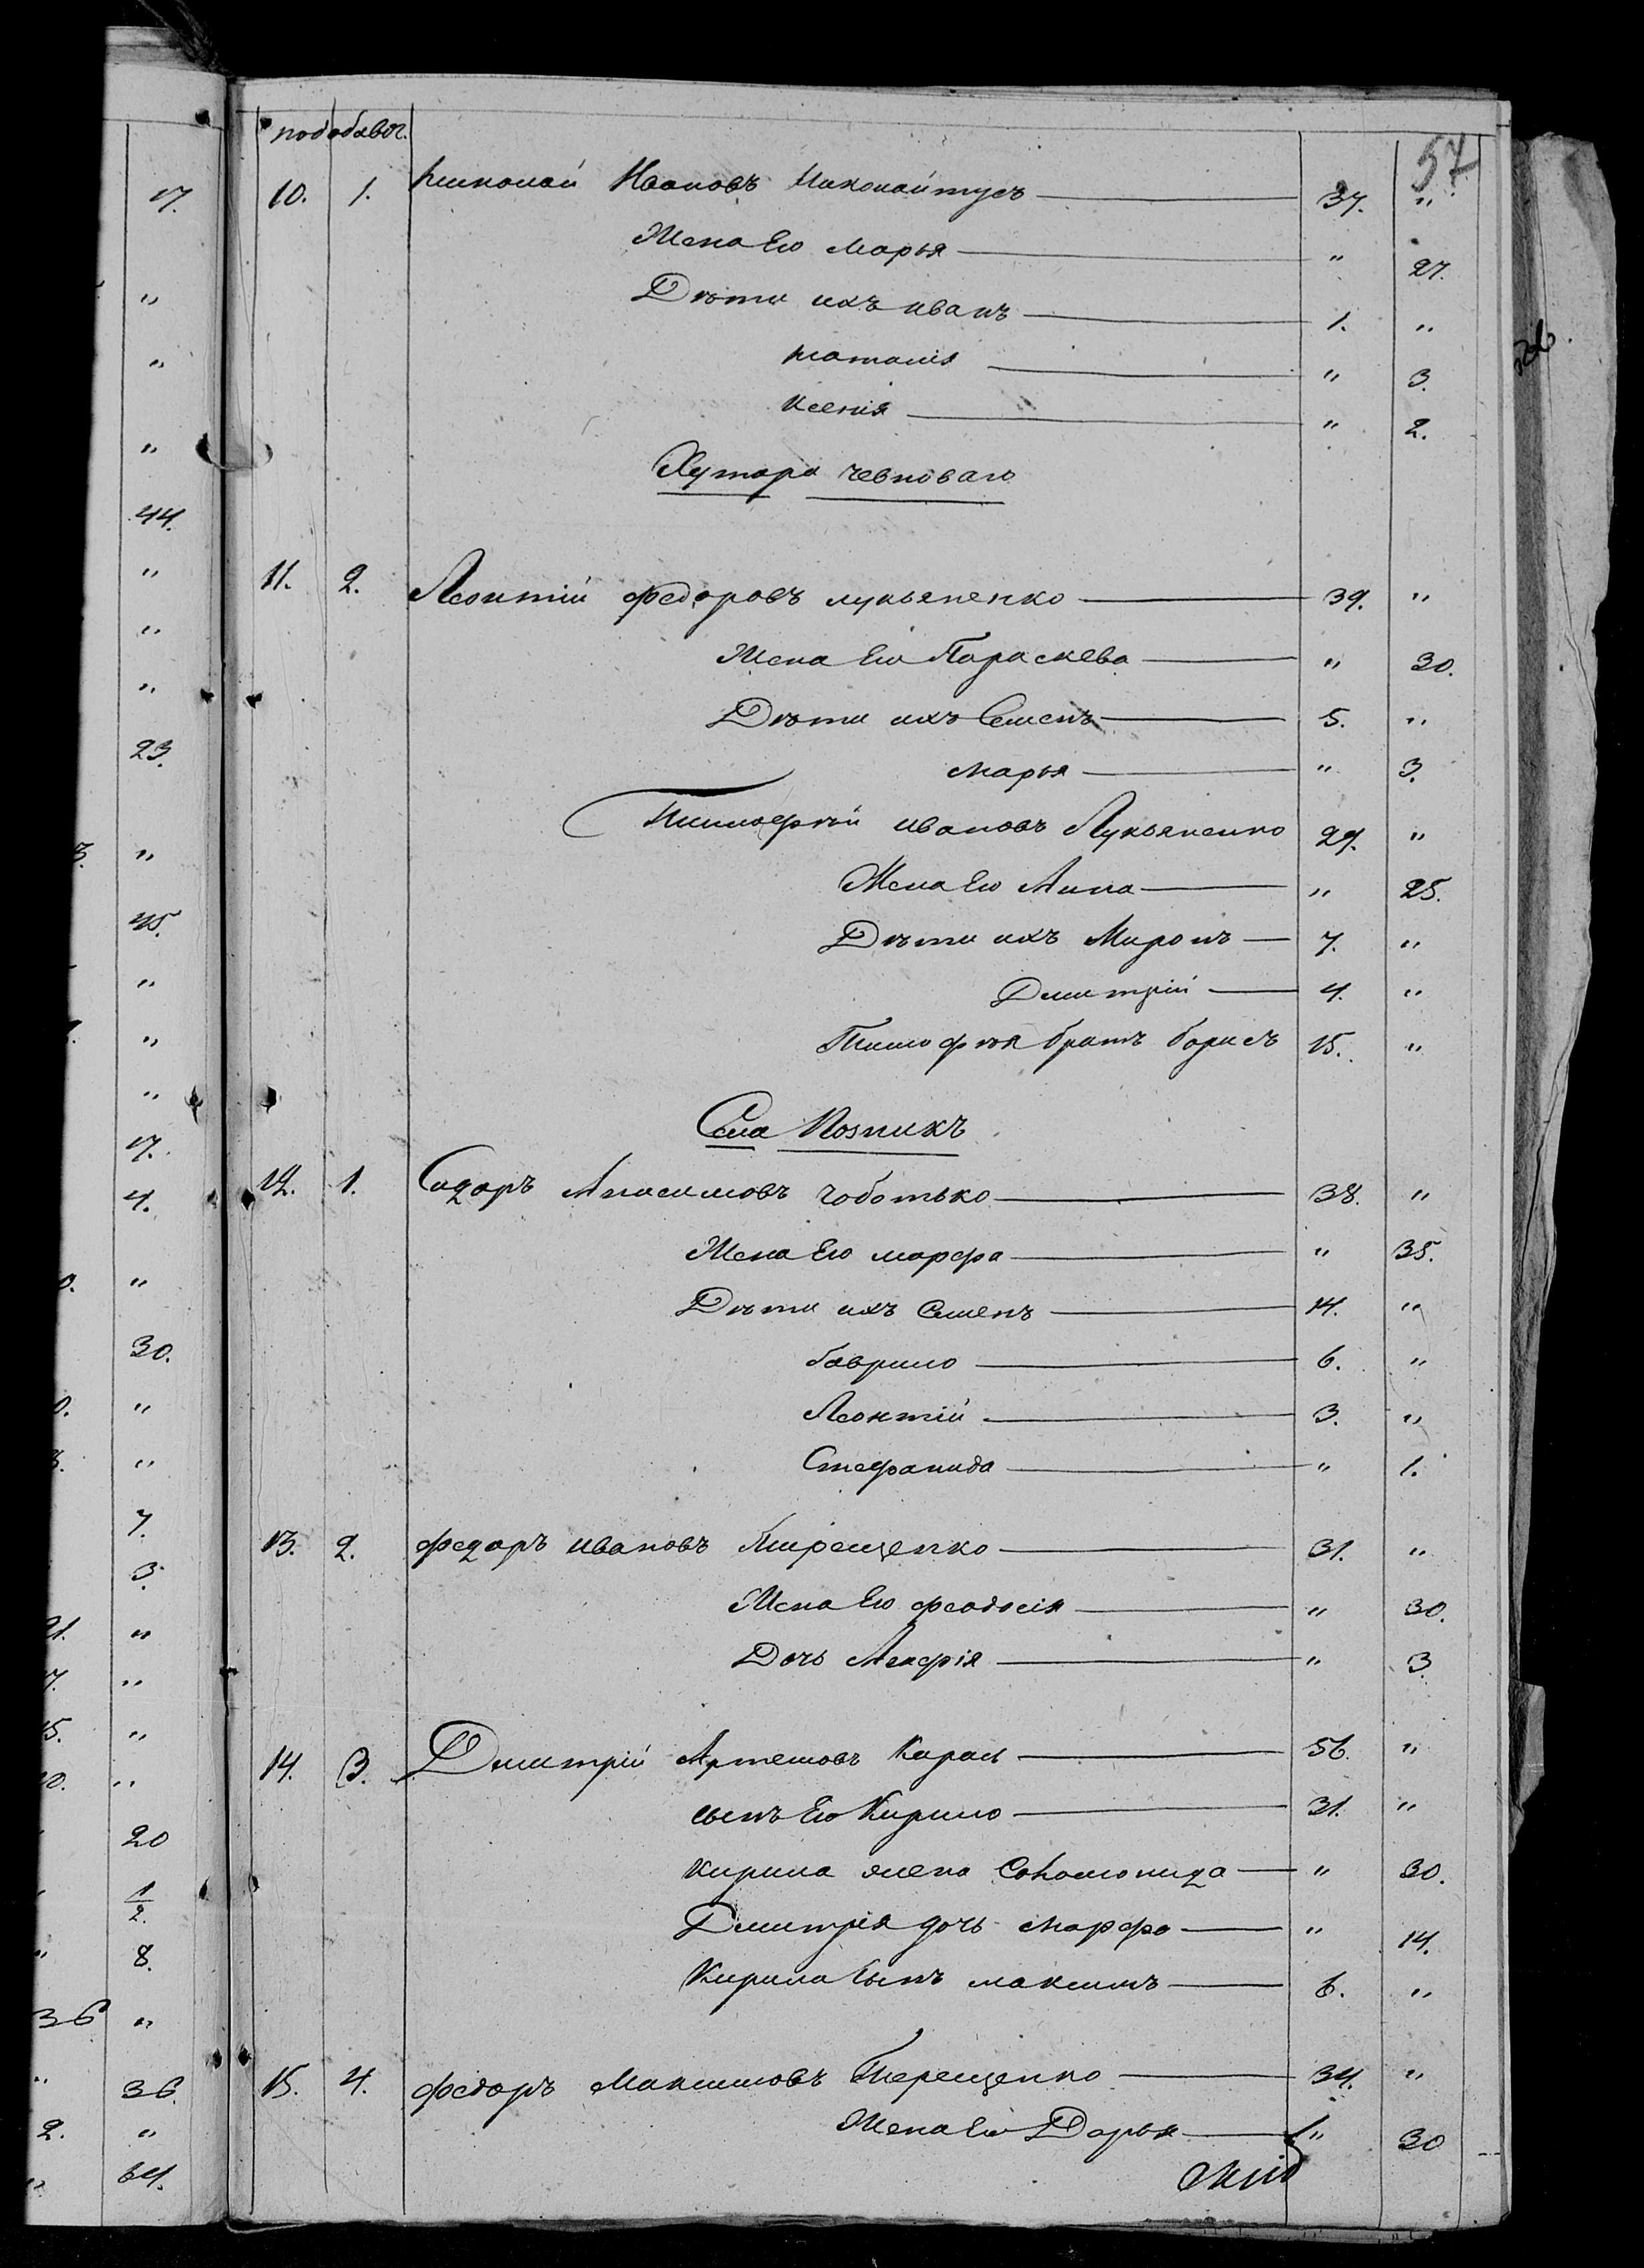 57
10. 1. Николай Ивановъ 37. "
Жена Его Марья " 27.
Дѣти ихъ иванъ 1. "
наталія " 3.
Ксенія " 2.
Хутора
11. 2. Леонтій федоровъ лукьяненко 39. "
Жена Его Параскева " 30.
Дѣти ихъ Семенъ 5. "
Марья " 3.
Тимофѣй ивановъ Лукьяненко 27. "
Жена Его Анна " 25.
Дѣти ихъ Миронъ 7. "
Дмитрій 4. "
Тимофѣя братъ борисъ 15. "
Села Позникъ
12. 1. Сидоръ Анисимовъ чоботько 38. "
Жена Его марфа " 35.
Дѣти ихъ Семенъ 14. "
гаврило 6. "
Леонтій 3. "
Стефанида " 1.
13. 2. федоръ ивановъ 31. "
Жена Его феодосія " 30.
Дочь " 3.
14. 3. Дмитрій Артемовъ Карась 56. "
сынъ Его Кирило 31. "
Кирила жена Соломонида " 30.
Дмитрія дочь марфа " 14.
Кирила сынъ максимъ 6. "
15. 4. федоръ Максимовъ Терещенко 34. "
Жена Его Дарья " 30